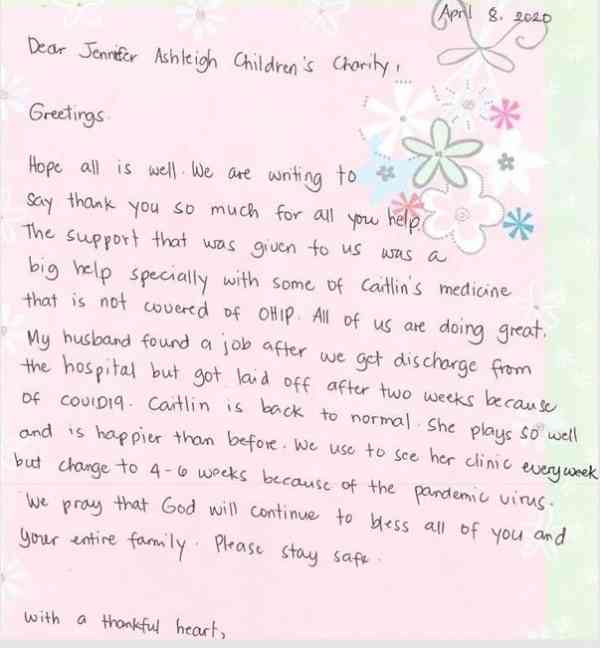 April 8, 2020
Dear Jennifer Ashleigh Children's Charity,
Greetings.
Hope all is well. We are writing to
say thank you so much for all you help.
The support that was given to us was a
big help specially with some of Caitlin's medicine
that is not covered of OHIP. All of us are doing great.
My husband found a job after we get discharge from
the hospital but got laid off after two weeks because
of COVID19. Caitlin is back to normal. She plays so well
and is happier than before. We use to see her clinic every week
but change to 4-6 weeks because of the pandemic virus.
We pray that God will continue to bless all of you and
your entire family. Please stay safe.
with a thankful heart,